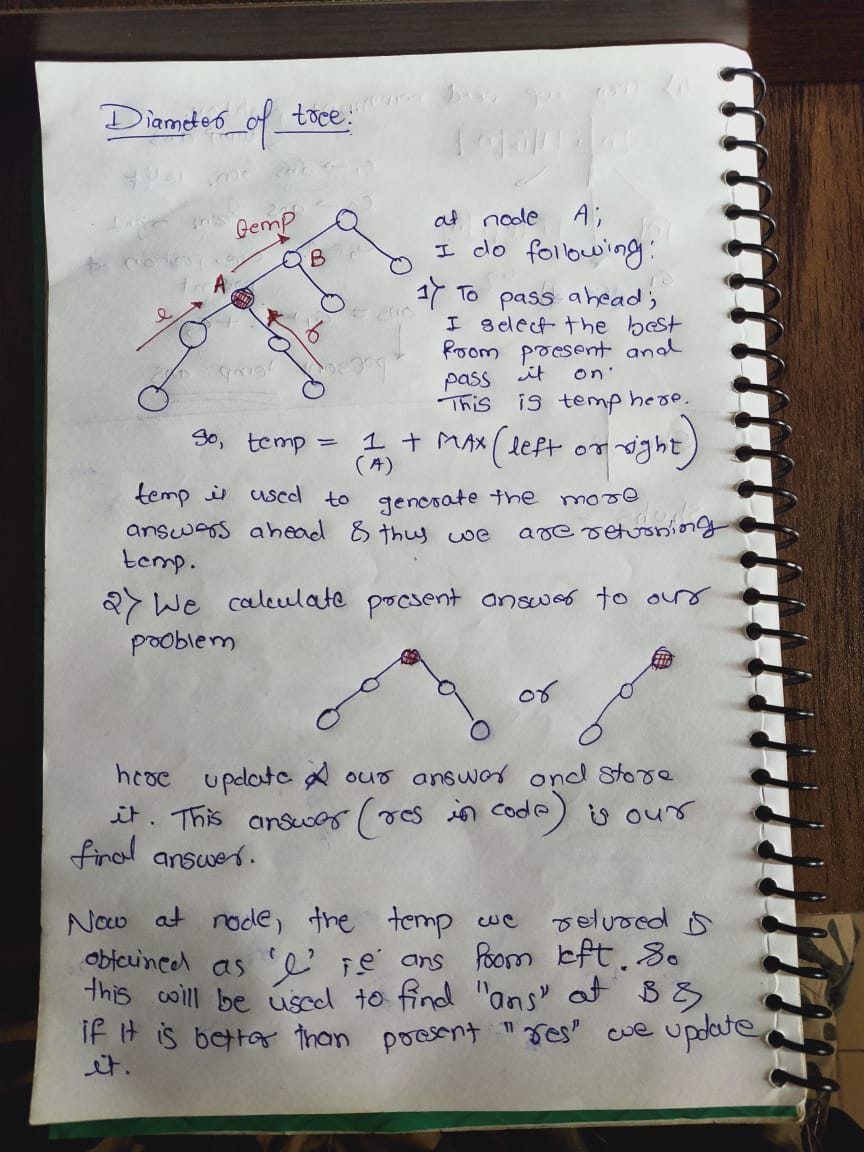 Diameter of tree:
at node A;
I do following:
temp
B
A
l
r
1) To pass ahead;
I select the best
from present and
pass it on.
This is temp here.
So, temp = 1 + MAX (left or right)
(A)
temp is used to generate the more
answers ahead & thus we are returning
temp.
2) We calculate present answer to our
problem
or
here update our answer and store
it. This answer (res in code) is our
final answer.
Now at node, the temp we retured is
obtained as 'l' i.e ans from left. So
this will be used to find "ans" at B &
if it is better than present "res" we update
it.